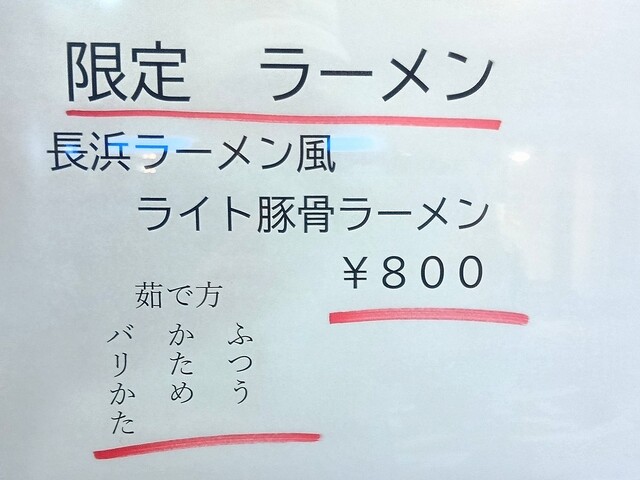 限定　ラーメン
長浜ラーメン風
ライト豚骨ラーメン
￥８００
茹で方
ふつう
かため
バリかた